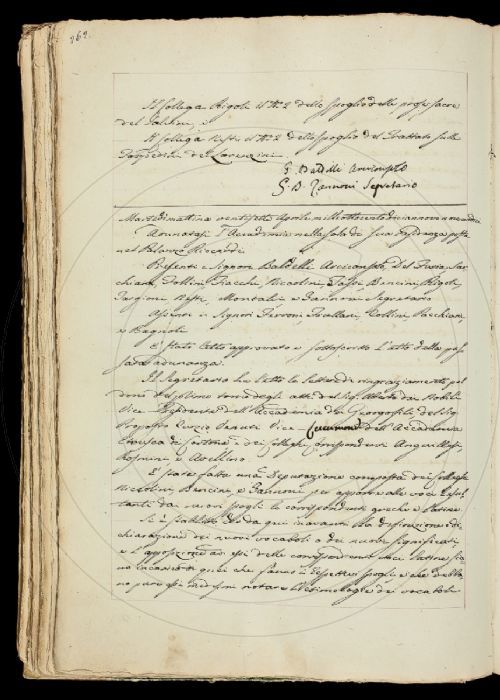 262.
Il Collega Rigoli il N.° 2 dello spoglio delle prose sacre
del Salvini, e
Il Collega il N.° 2 dello spoglio del Trattato sulle
de Lorenzini
G. Baldelli Arciconsolo
G. B. Zannoni Segretario
Martedì mattina ventisette Aprile milleottocentodiciannove
Adunatasi l'Accademia nella sala di sua residenza posta
nel Palazzo Riccardi
Presenti i Signori Baldelli Arciconsolo, Del Furia, Sar
chiani, Follini, Fiacchi, Niccolini, Bencini, Rigoli,
Targioni, Montalvi e Zannoni Segretario
Assenti i Signori Ferroni, Collini,
e Bagnoli
È stato letto approvato e sottoscritto l'atto della pas
sata adunanza.
Il Segretario ha letto le lettere di ringraziamento pel
dono del primo tomo degli atti del Sig.
Vice Presidente dell'Accademia de Georgofili, del Sig.
Proposto Vice dell'Accademia
Etrusca di Cortona e dei Colleghi corrispondenti
Rosmini e Avellino
È stata fatta una Deputazione composta dei Colleghi
Niccolini, Bencini e Zannoni per apporre alle voci resul
tanti dai nuovi spogli le corrispondenti greche e latine
Si è stabilito che da qui innanzi la definizione e di
chiarazione dei nuovi vocaboli o dei nuovi significati
e l'apposizione ad essi delle corrispondenti voci latine sia
no incaricati quei che fanno i respettivi spogli, e che debba
no pure essi medesimi notare l'etimologie dei vocaboli